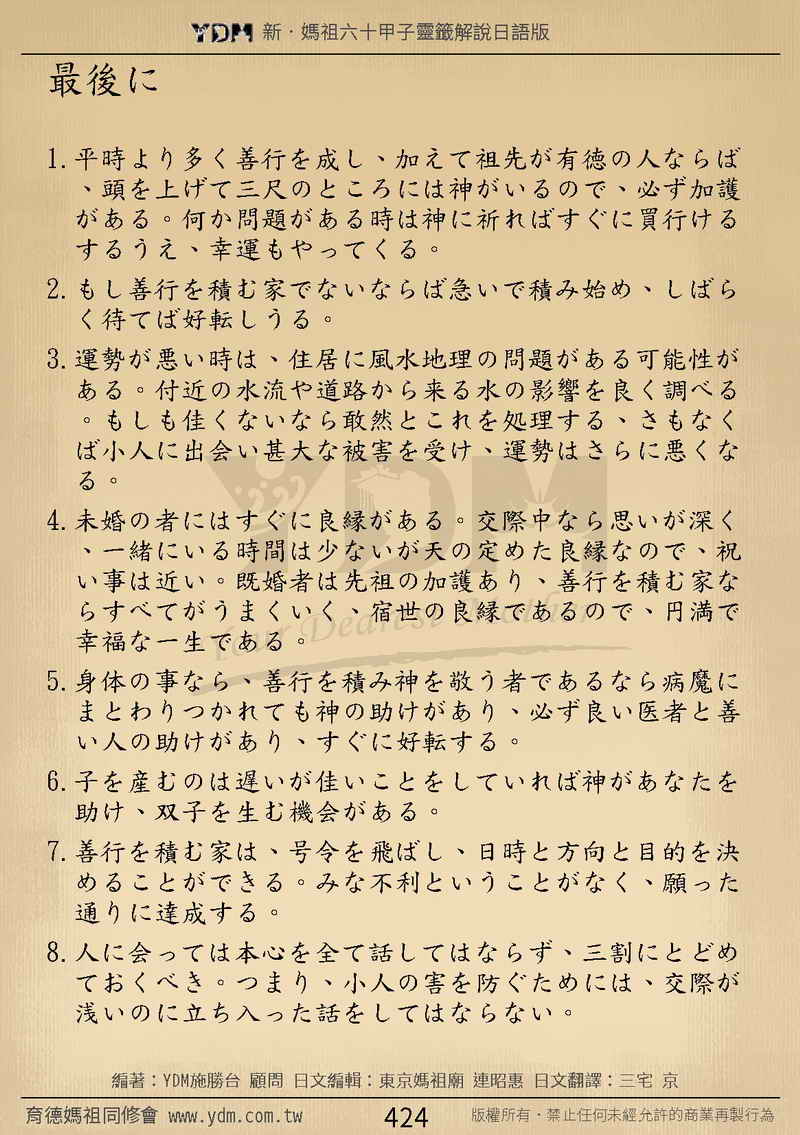 YDM 新・媽祖六十甲子靈籤解說日語版
最後に
1. 平時より多く善行を成し、加えて祖先が有徳の人ならば
、頭を上げて三尺のところには神がいるので、必ず加護
がある。何か問題がある時は神に祈ればすぐに買行ける
するうえ、幸運もやってくる。
2. もし善行を積む家でないならば急いで積み始め、しばら
く待てば好転しうる。
3. 運勢が悪い時は、住居に風水地理の問題がある可能性が
ある。付近の水流や道路から来る水の影響を良く調べる
。もしも佳くないなら敢然とこれを処理する、さもなく
ば小人に出会い甚大な被害を受け、運勢はさらに悪くな
る。
4. 未婚の者にはすぐに良縁がある。交際中なら思いが深く
、一緒にいる時間は少ないが天の定めた良縁なので、祝
い事は近い。既婚者は先祖の加護あり、善行を積む家な
らすべてがうまくいく、宿世の良縁であるので、円満で
幸福な一生である。
5. 身体の事なら、善行を積み神を敬う者であるなら病魔に
まとわりつかれても神の助けがあり、必ず良い医者と善
い人の助けがあり、すぐに好転する。
6. 子を産むのは遅いが佳いことをしていれば神があなたを
助け、双子を生む機会がある。
7. 善行を積む家は、号令を飛ばし、日時と方向と目的を決
めることができる。みな不利ということがなく、願った
通りに達成する。
8. 人に会っては本心を全て話してはならず、三割にとどめ
ておくべき。つまり、小人の害を防ぐためには、交際が
浅いのに立ち入った話をしてはならない。
YDM
Your Dearest Mother
編著：YDM施勝台 顧問 日文編輯：東京媽祖廟 連昭惠 日文翻譯：三宅 京
育德媽祖同修會 www.ydm.com.tw 424 版權所有・禁止任何未經允許的商業再製行為